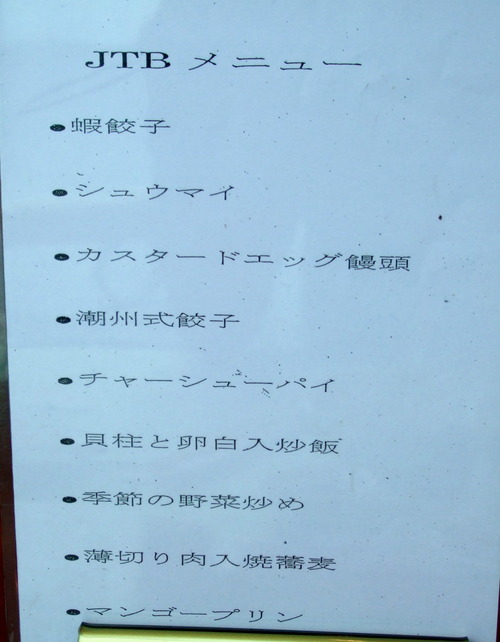 JTB メニュー
●蝦餃子
●シュウマイ
●カスタードエッグ饅頭
●潮州式餃子
●チャーシューパイ
●貝柱と卵白入炒飯
●季節の野菜炒め
●薄切り肉入焼蕎麦
●マンゴープリン